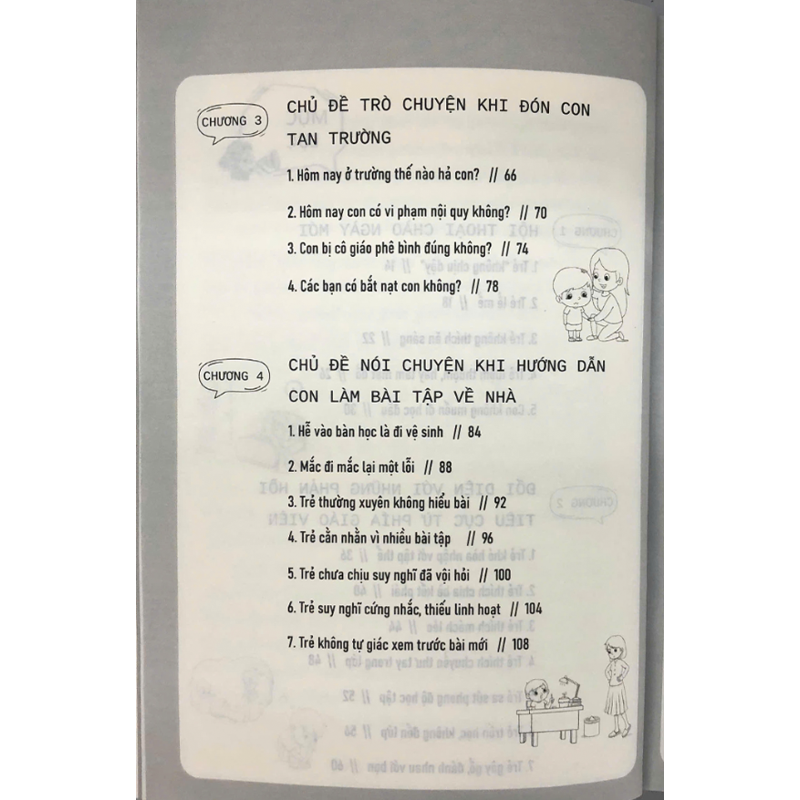 CHƯƠNG 3
CHỦ ĐỀ TRÒ CHUYỆN KHI ĐÓN CON
TAN TRƯỜNG
1. Hôm nay ở trường thế nào hả con? // 66
2. Hôm nay con có vi phạm nội quy không? // 70
3. Con bị cô giáo phê bình đúng không? // 74
4. Các bạn có bắt nạt con không? // 78
CHƯƠNG 4
CHỦ ĐỀ NÓI CHUYỆN KHI HƯỚNG DẪN
CON LÀM BÀI TẬP VỀ NHÀ
1. Hễ vào bàn học là đi vệ sinh // 84
2. Mắc đi mắc lại một lỗi // 88
3. Trẻ thường xuyên không hiểu bài // 92
4. Trẻ cằn nhằn vì nhiều bài tập // 96
5. Trẻ chưa chịu suy nghĩ đã vội hỏi // 100
6. Trẻ suy nghĩ cứng nhắc, thiếu linh hoạt // 104
7. Trẻ không tự giác xem trước bài mới // 108